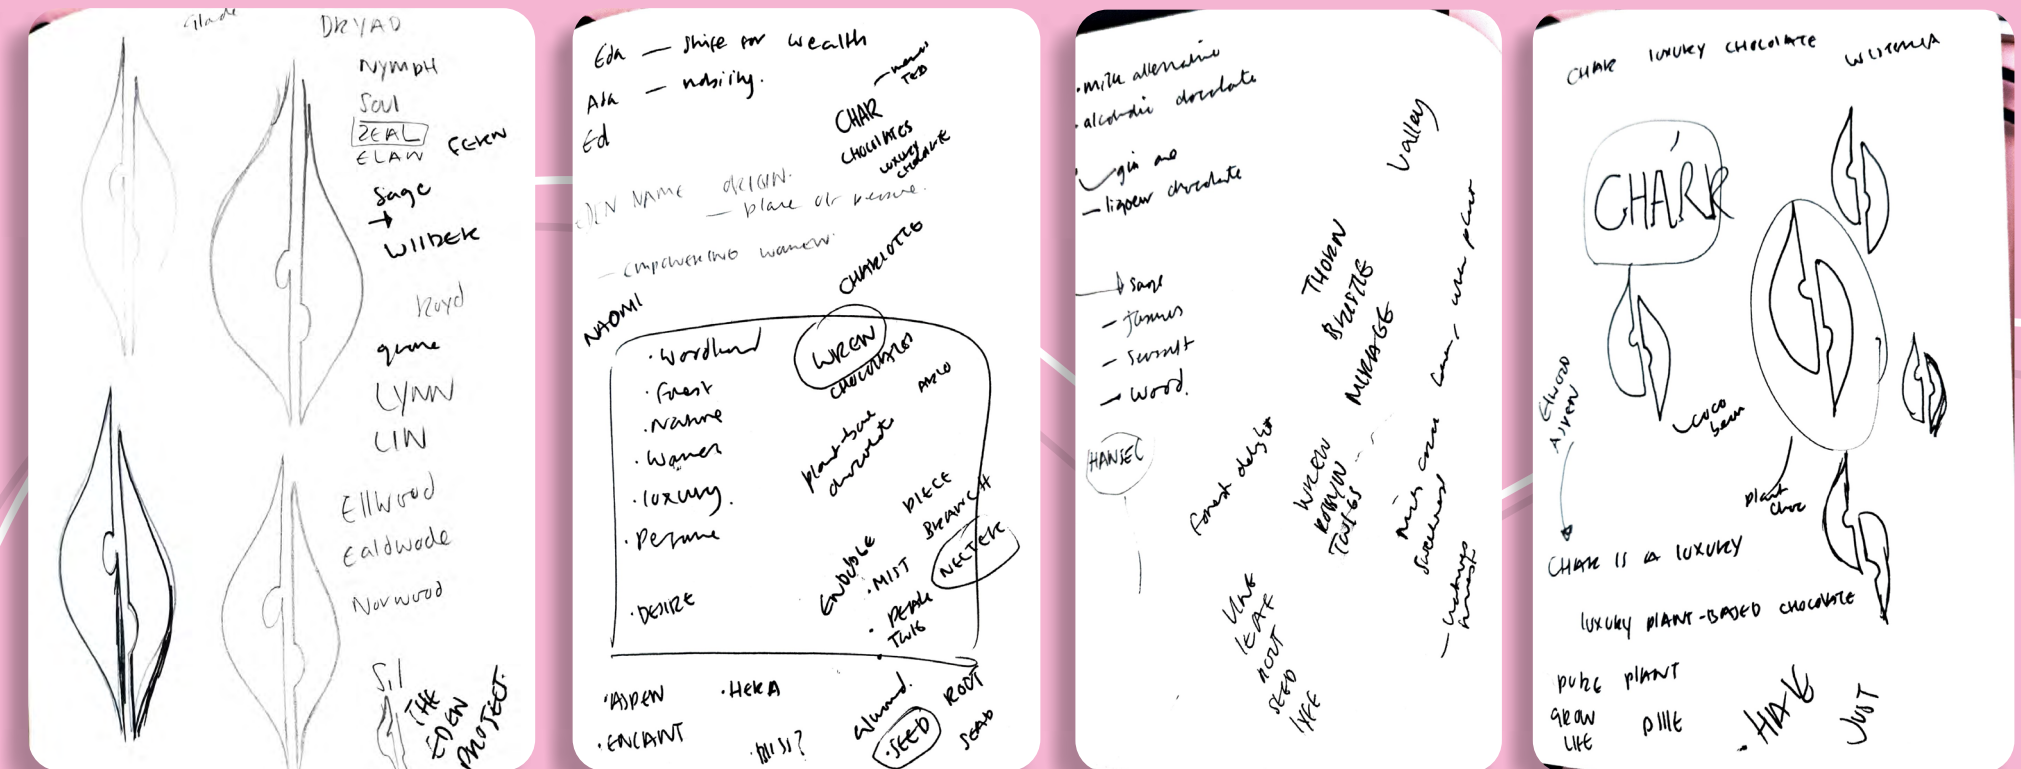 Glade
DRYAD
NYMPH
Soul
ZEAL
ELAN
FERN
Sage
WILDER
quine
LYNN
LIN
Ellwood
Ealdwode
Norwood
Sil
THE
EDEN
PROJECT.
Eda — strife for wealth
Ada — nobility.
Ed
CHAR
CHOCOLATES
LUXURY
CHOCOLATE
EDEN NAME ORIGIN.
— place of pleasure.
— EMPOWERING WOMEN.
CHARLOTTE
NAOMI
• Woodland
• Forest
• Nature
• Women
• luxury.
• Perfume
• DESIRE
WREN
CHOCOLATES
ARLO
plant-based
chocolate
PIECE
BRANCH
NECTER
ENNOBLE
• MIST
• PETAL
TWIG
• ASPEN
• HERA
• ENCANT
• BLISS?
almond.
ROOT
• SEED
SEAD
• milk alternative
• alcoholic chocolate
gin and
— liqueur chocolate
Valley
Sage
— Sunset
— Wood.
HANSEL
forest delight
THORN
BRISTLE
MIRAGE
WREN
ROBYN
TWIGS
VINE
LEAF
ROOT
SEED
LYFE
— natures
harvest
CHAR LUXURY CHOCOLATE
WISTERIA
CHARK
Elwood
ASPEN
coco
bean
plant
choc
CHAR IS A LUXURY
LUXURY PLANT-BASED CHOCOLATE
PURE PLANT
GROW
LIFE
JUST